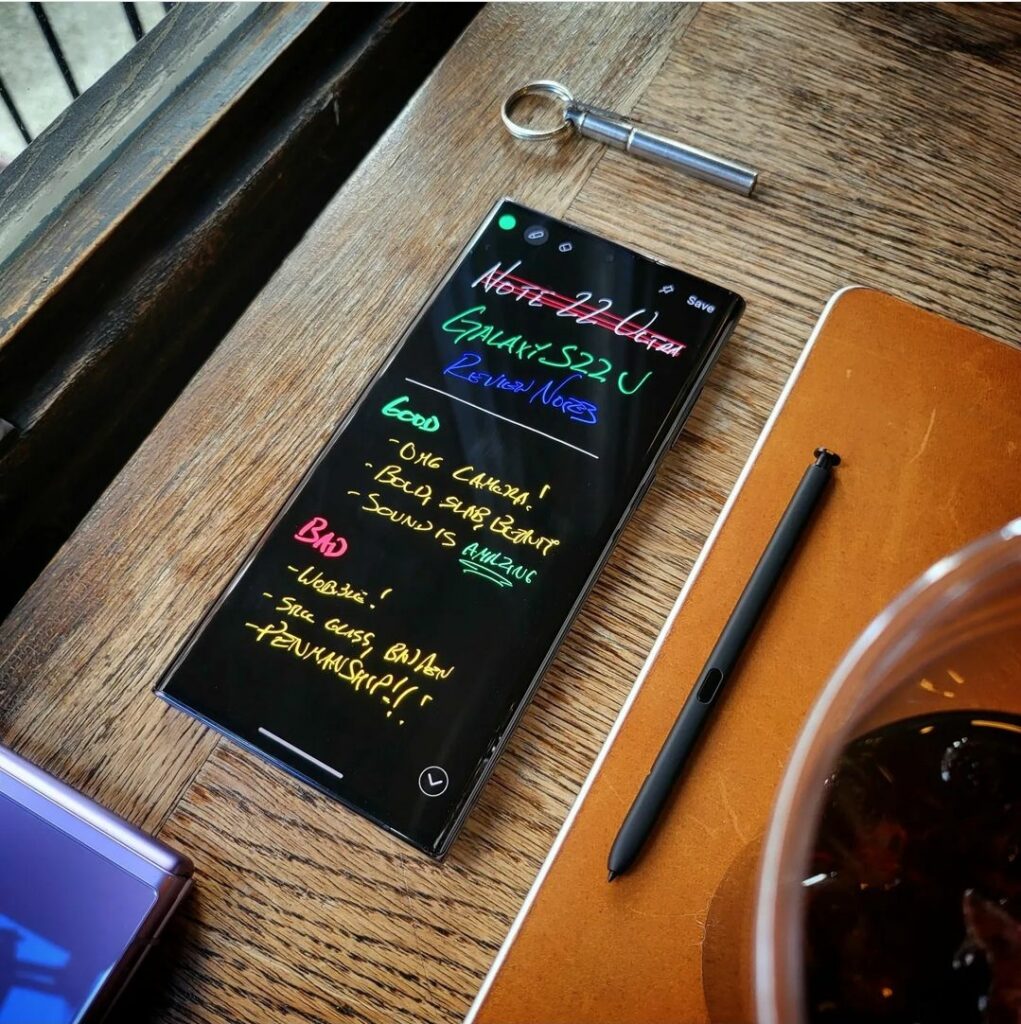 Save
NOTE 22 ULTRA
GALAXY S22 U
REVIEW NOTES
GOOD
- OMG CAMERA!
- BOLD, SLAB, BEAUTY
- SOUND IS AMAZING
BAD
- WOBBLE!
- STILL GLASS, BAD PEN
- PENMANSHIP!!!